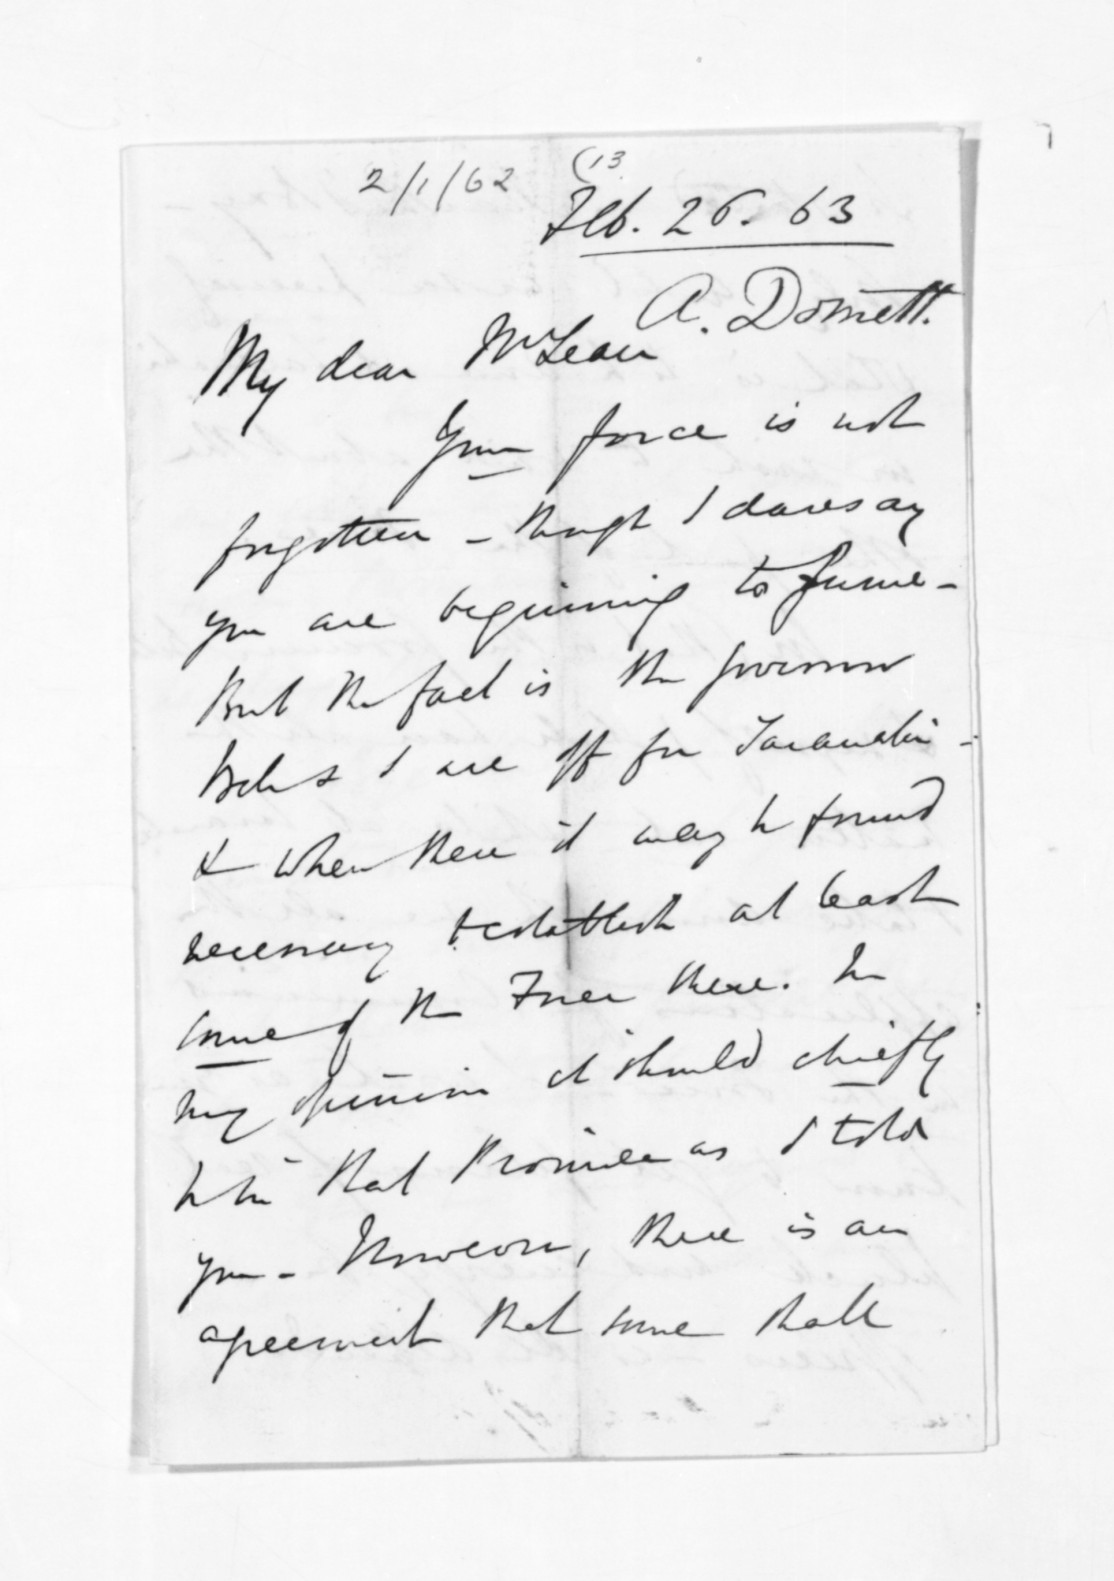 2/1/62 (13
Feb. 26. 63
A. Domett.
My dear McLean
Your force is not
forgotten - though I daresay
you are beginning to fume -
But the fact is the Governor
Bell & I are off for Taranaki -
& when there it may be found
necessary to establish at least
some of the Force there. In
my opinion it should chiefly
be in that Province as I told
you - However, there is an
agreement that some shall